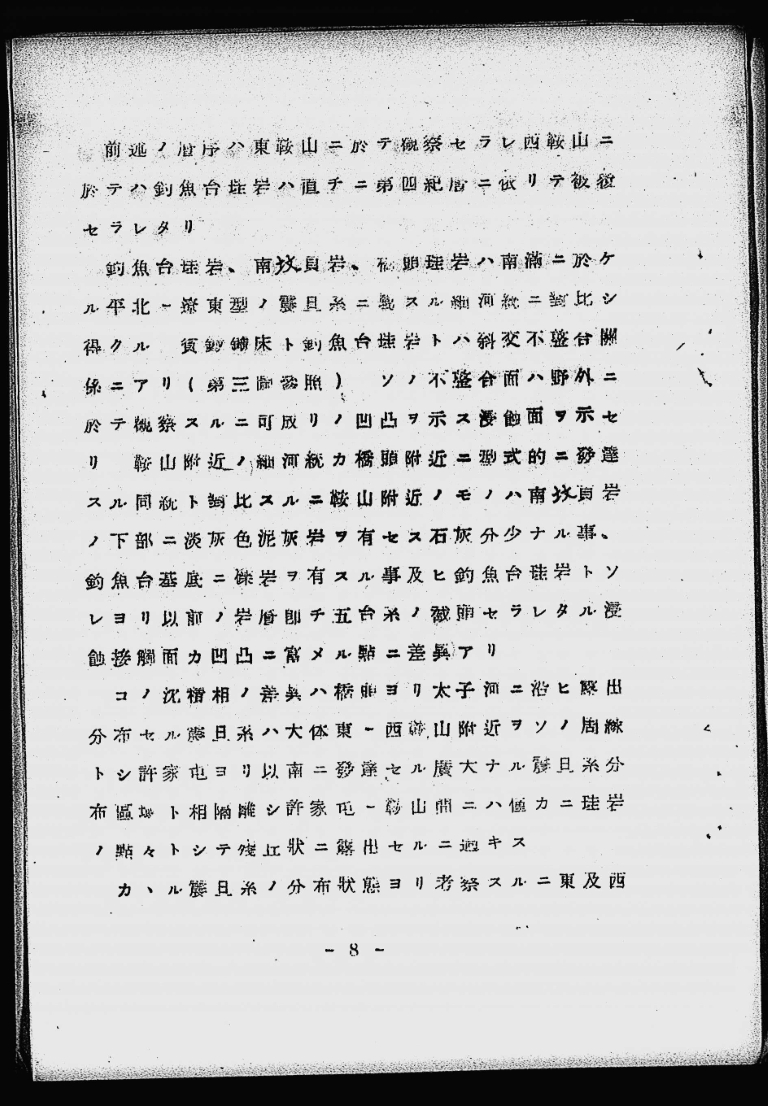 前述ノ層序ハ東鞍山ニ於テ観察セラレ西鞍山ニ
於テハ釣魚台珪岩ハ直チニ第四紀層ニ依リテ被覆
セラレタリ
釣魚台珪岩、南坟頁岩、橋頭珪岩ハ南滿ニ於ケ
ル平北ー遼東型ノ震旦系ニ属スル細河統ニ對比シ
得クル 貧鉄鑛床ト釣魚台珪岩トハ斜交不整合關
係ニアリ(第三圖參照) ソノ不整合面ハ野外ニ
於テ観察スルニ可成リノ凹凸ヲ示ス浸蝕面ヲ示セ
リ 鞍山附近ノ細河統カ橋頭附近ニ型式的ニ發達
スル同統ト對比スルニ鞍山附近ノモノハ南坟頁岩
ノ下部ニ淡灰色泥灰岩ヲ有セス石灰分少ナル事、
釣魚台基底ニ礫岩ヲ有スル事及ヒ釣魚台珪岩トソ
レヨリ以前ノ岩層即チ五台系ノ截頭セラレタル浸
蝕接觸面カ凹凸ニ富メル點ニ差異アリ
コノ沈積相ノ差異ハ橋頭ヨリ太子河ニ沿ヒ露出
分布セル震旦系ハ大体東ー西鞍山附近ヲソノ周緣
トシ許家屯ヨリ以南ニ發達セル廣大ナル震旦系分
布區域ト相隔離シ許家屯ー鞍山間ニハ僅カニ珪岩
ノ點々トシテ殘丘狀ニ露出セルニ過キス
カヽル震旦系ノ分布狀態ヨリ考察スルニ東及西
- 8 -